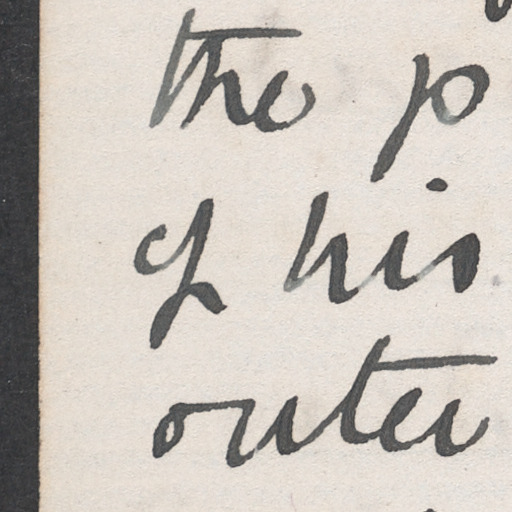 the p
of his
outer